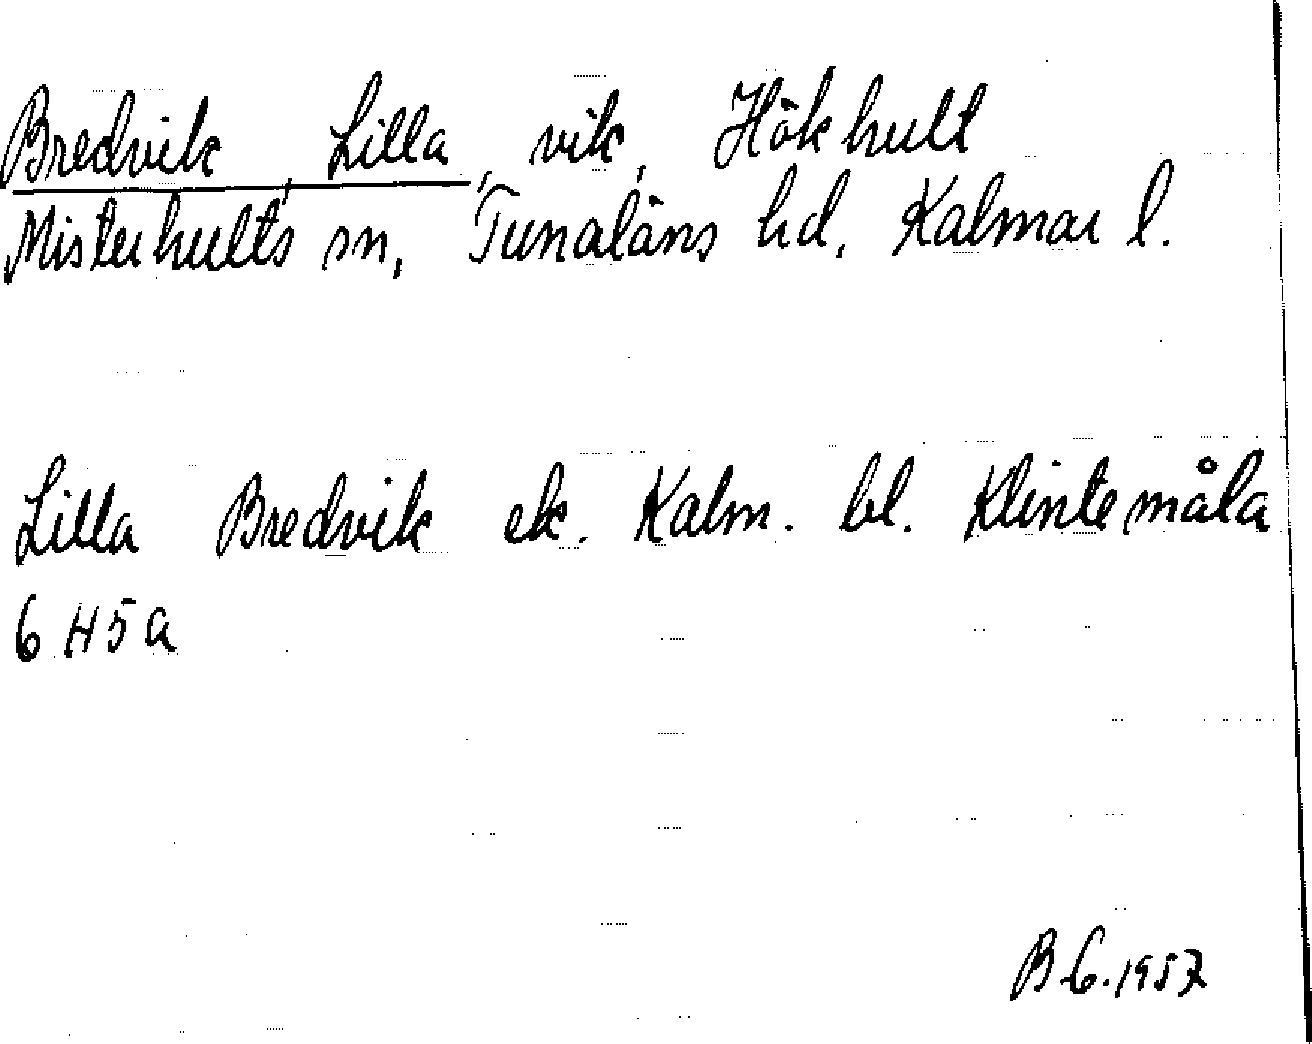 Bredvik, Lilla, vik, Hökhult
Misterhults sn, Tunaläns hd, Kalmar l.
Lilla Bredvik ek. Kalm. bl. Klintemåla
6 H5a
B 6.1957